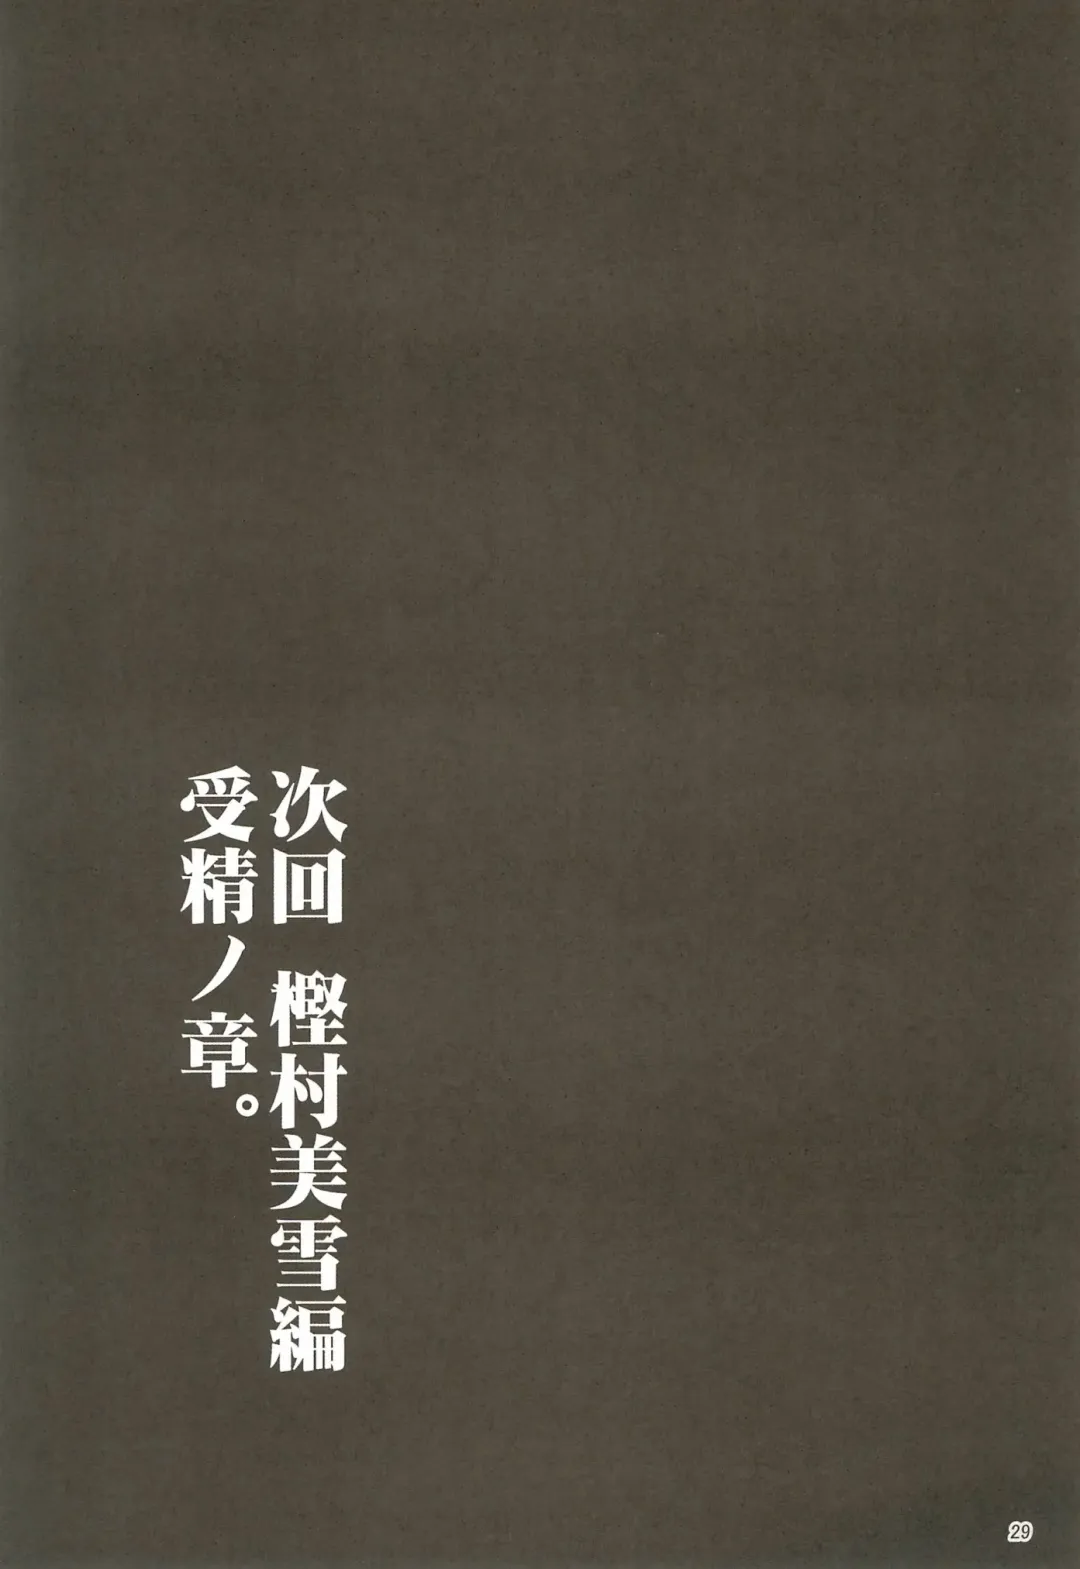 次回　樫村美雪編
受精ノ章。
29